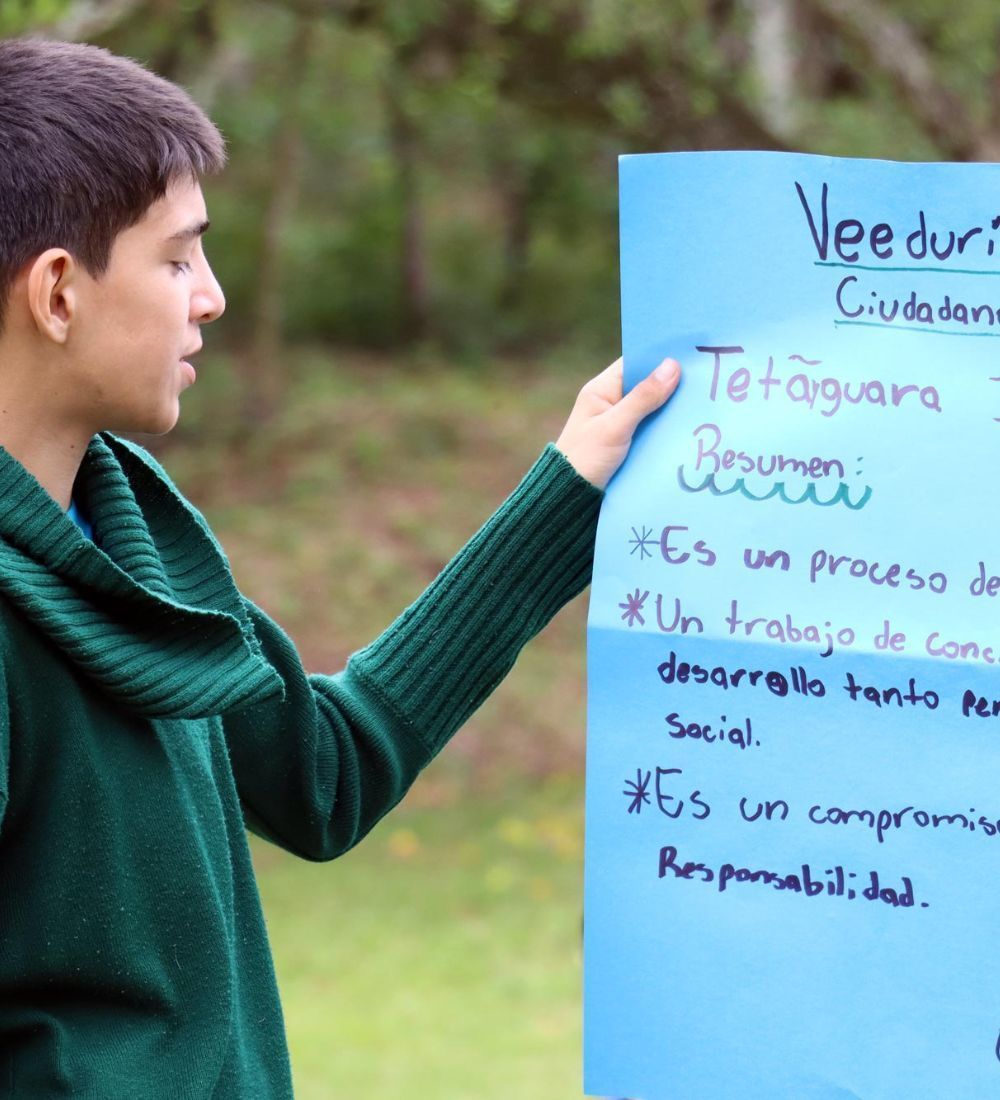 Veeduri
Ciudadan
Tetãyguara
Resumen:
*Es un proceso de
*Un trabajo de conc
desarrollo tanto per
social.
*Es un compromiso
Responsabilidad.